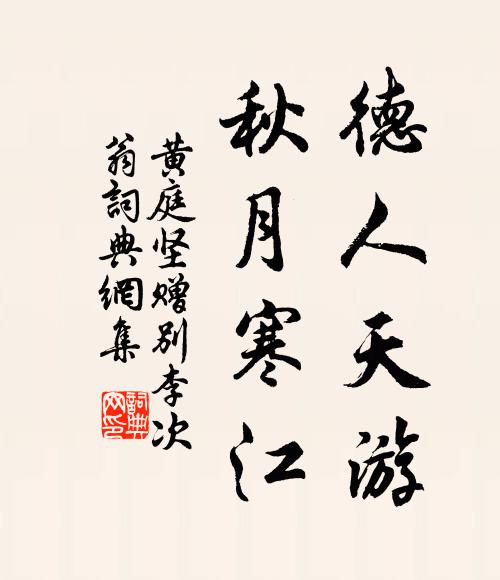 德人天游
秋月寒江
黄庭坚赠别李次
翁詞典網集
詞典网印